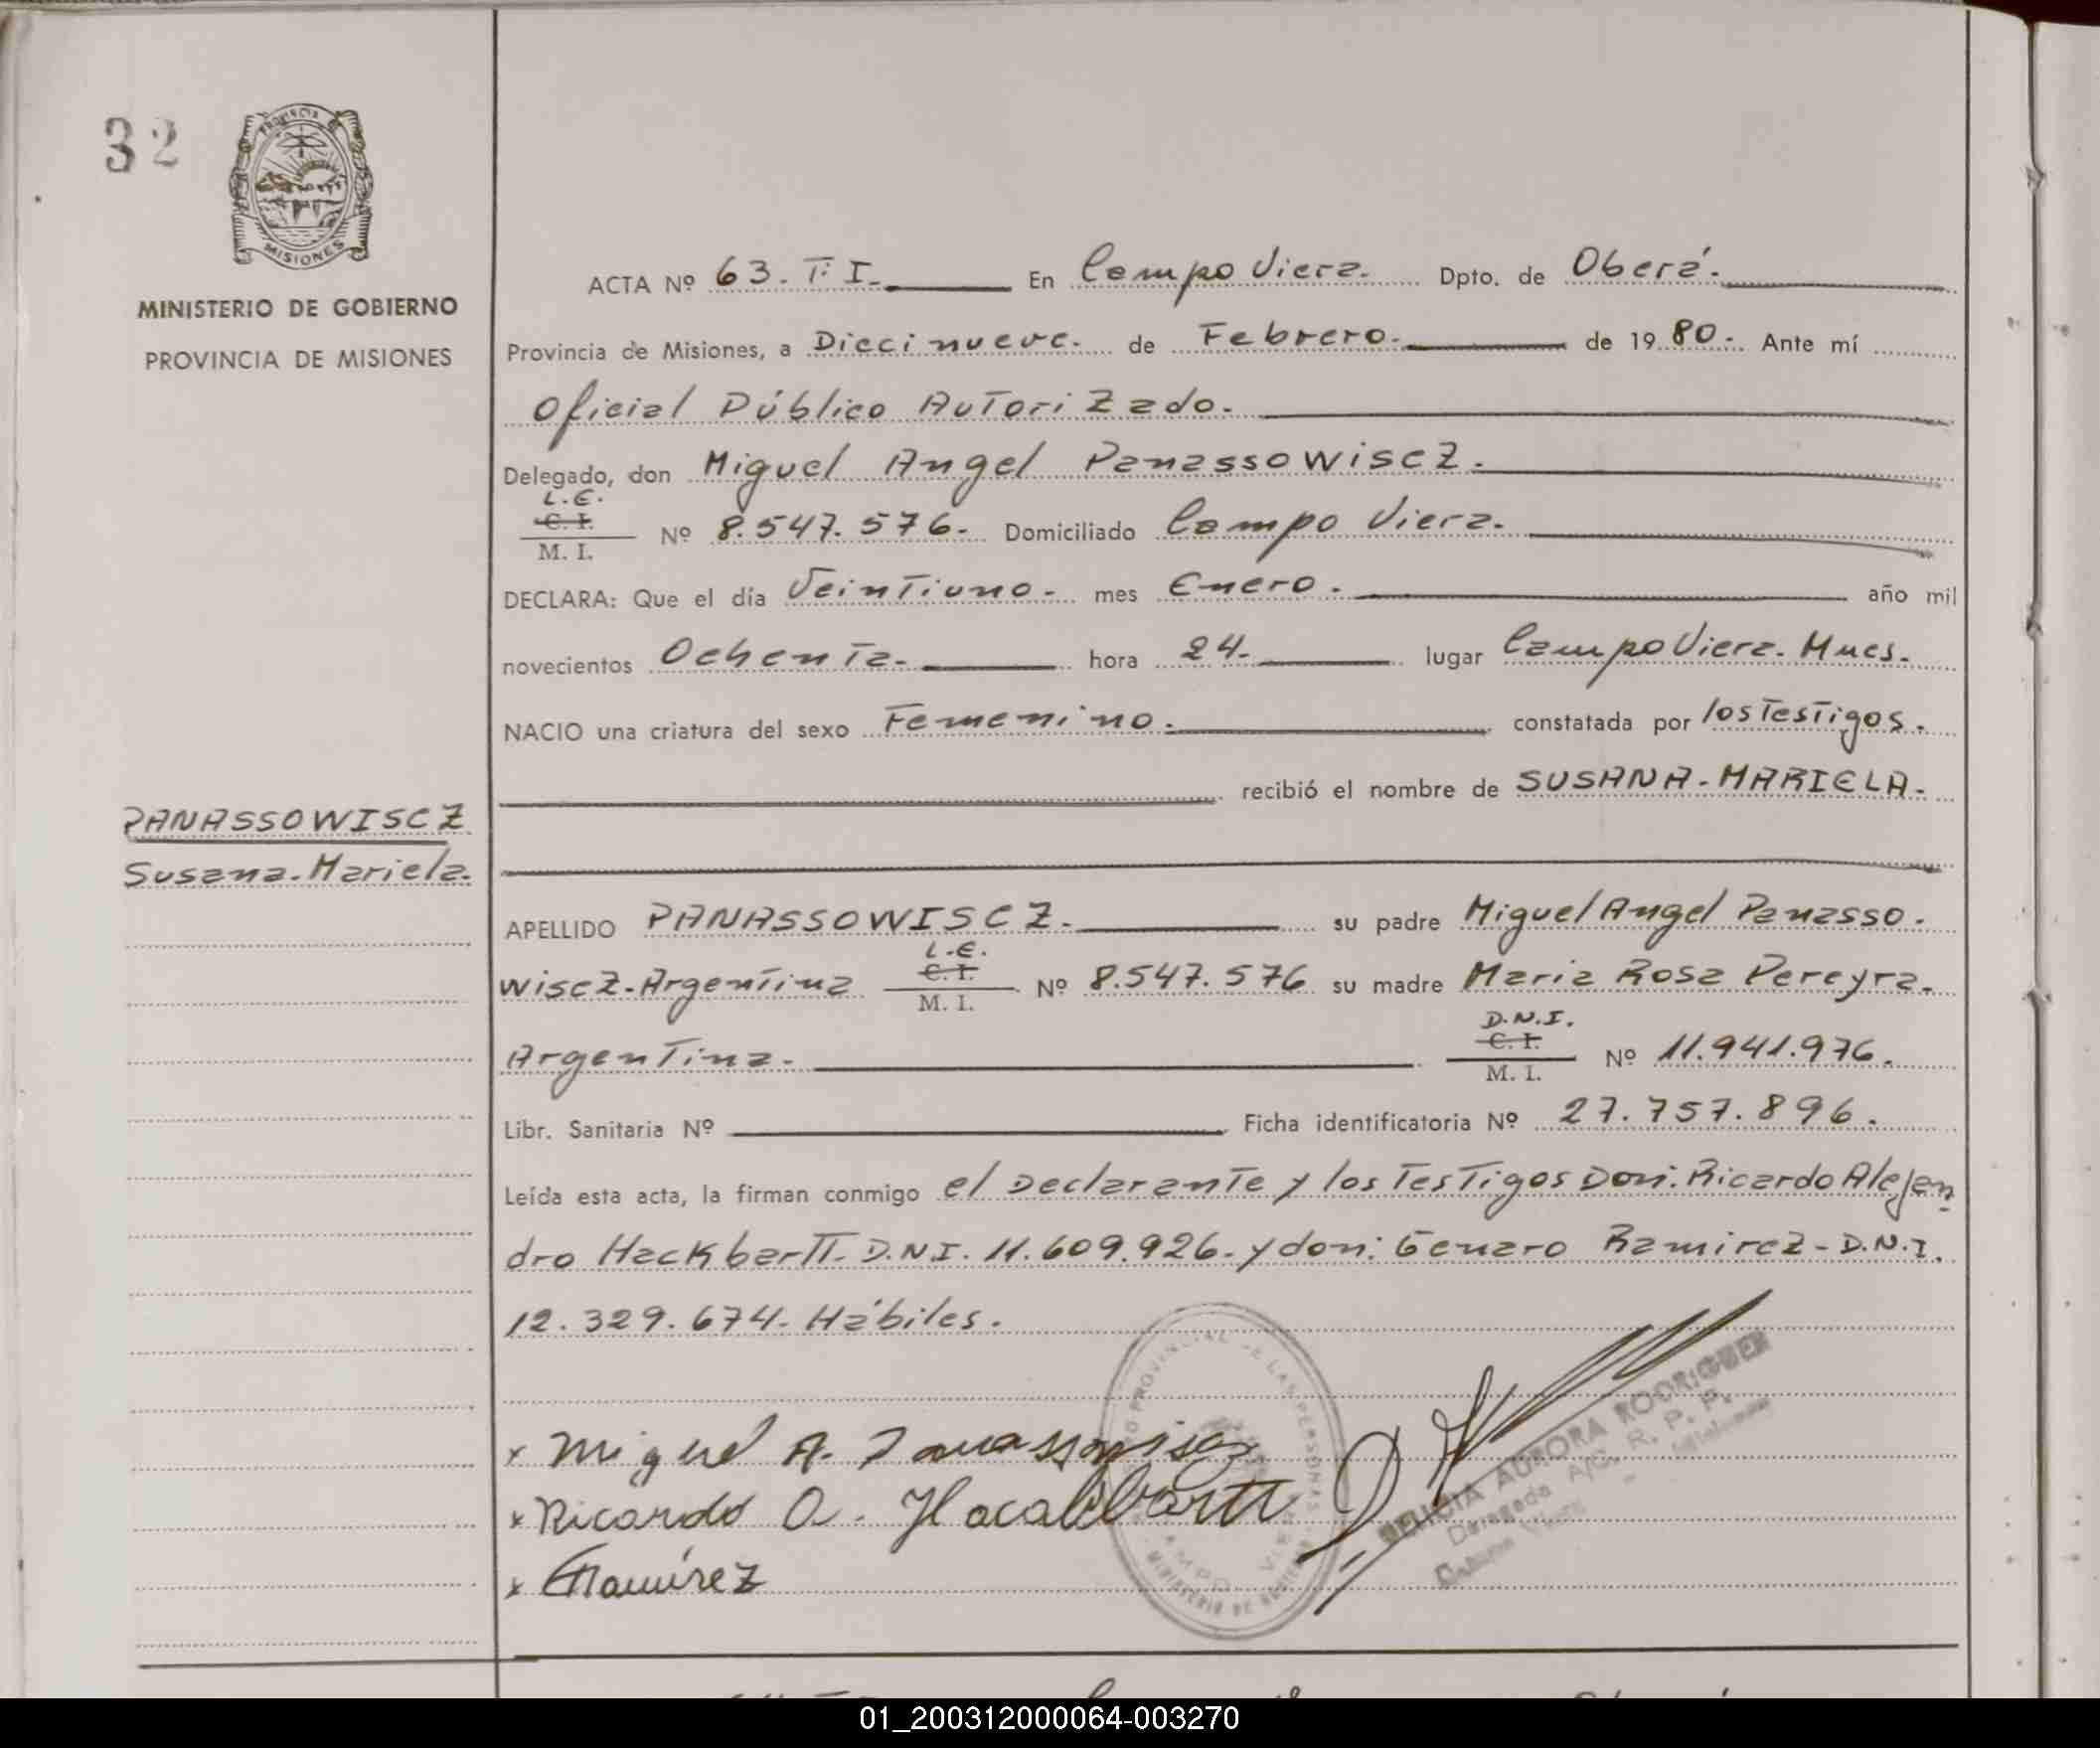 32
PROVINCIA DE
MISIONES
MINISTERIO DE GOBIERNO
PROVINCIA DE MISIONES
ACTA Nº 63. T: I. En Campo Viera. Dpto. de Oberá.
Provincia de Misiones, a Diecinueve. de Febrero. de 1980. Ante mí
Oficial Público Autorizado.
Delegado, don Miguel Angel Panassowiscz.
L.E.
C. I.
M. I. Nº 8.547.576. Domiciliado Campo Viera.
DECLARA: Que el día Veintiuno. mes Enero. año mil
novecientos Ochenta. hora 24. lugar Campo Viera. Mnes.
NACIO una criatura del sexo Femenino. constatada por los Testigos.
recibió el nombre de SUSANA-MARIELA.
PANASSOWISCZ
Susana-Mariela.
APELLIDO PANASSOWISCZ. su padre Miguel Angel Panasso.
L.E.
C. I.
wiscz-Argentina M. I. Nº 8.547.576 su madre Maria Rosa Pereyra.
D.N.I.
C. I.
Argentina. M. I. Nº 11.941.976.
Libr. Sanitaria Nº Ficha identificatoria Nº 27.757.896.
Leída esta acta, la firman conmigo el Declarante y los Testigos Don: Ricardo Alejan
dro Hackbartt. D.N.I. 11.609.926. y don: Genaro Ramirez - D.N.I.
12.329.674. Hábiles.
x Miguel A. Panassowiscz
x Ricardo A. Hacalbartt
x GRamírez
PROVINCIAL DE LAS PERSONAS
CAMPO VIERA
MINISTERIO DE GOBIERNO
AURORA RODRIGUEZ
Delegada A/C. R. P. P.
01_200312000064-003270